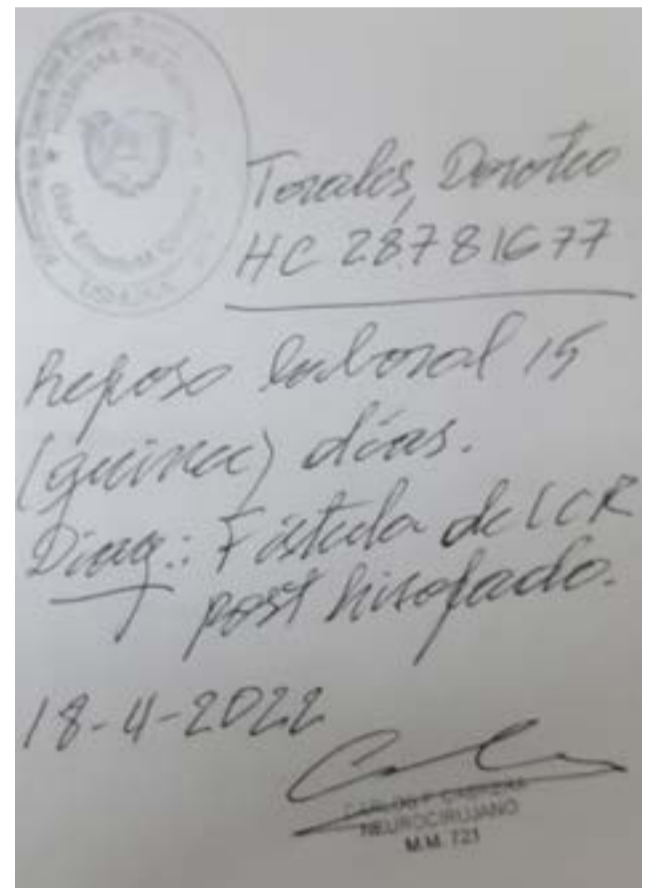 USHUAIA
Torales, Doroteo
HC 28781677
Reposo laboral 15
(quince) días.
Diag.: Fístula de LCR
post hisopado.
18-4-2022
CARLOS F. CABRERA
NEUROCIRUJANO
M.M. 721